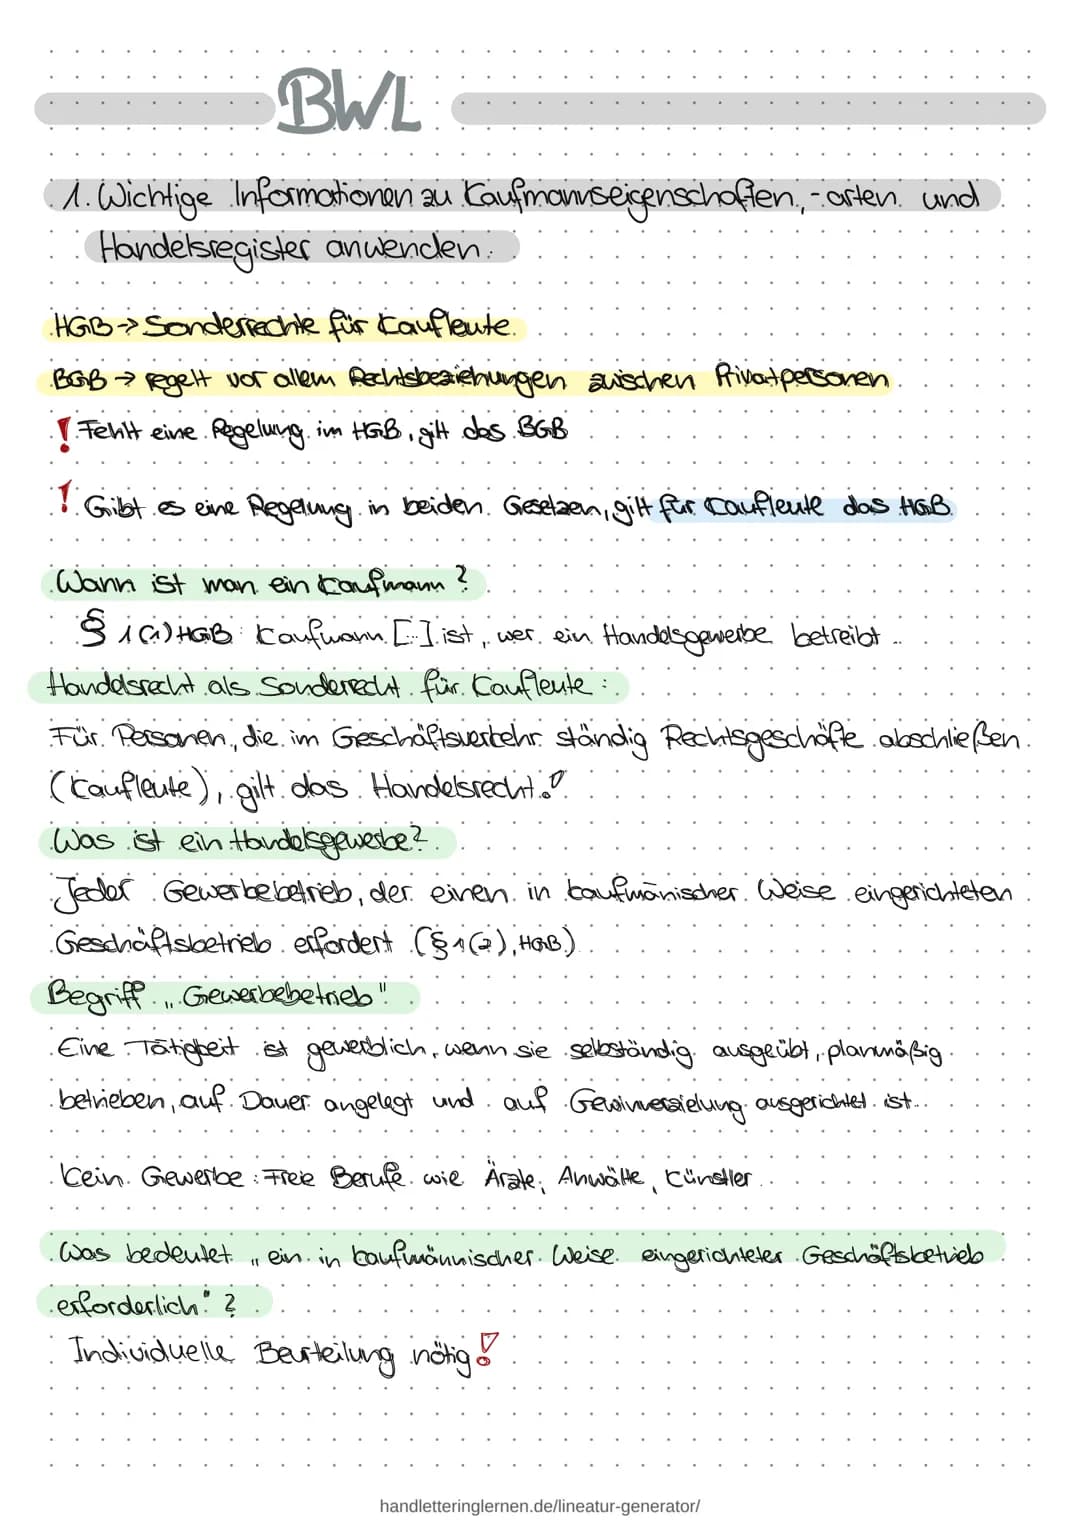 BWL
1. Wichtige Informationen zu Kaufmannseigenschaften, -arten und
Handelsregister anwenden.
HGB → Sonderrechte für Kaufleute.
BGB → regelt vor allem Rechtsbeziehungen zwischen Privatpersonen
! Fehlt eine Regelung im HGB, gilt das BGB
! Gibt es eine Regelung in beiden Gesetzen, gilt für Kaufleute das HGB.
Wann ist man ein Kaufmann?
§ 1 (1) HGB: Kaufmann [...] ist, wer ein Handelsgewerbe betreibt.
Handelsrecht als Sonderecht für Kaufleute:
Für Personen, die im Geschäftsverkehr ständig Rechtsgeschäfte abschließen
(Kaufleute), gilt das Handelsrecht.
Was ist ein Handelsgewerbe?
Jeder Gewerbebetrieb, der einen in kaufmänischer Weise eingerichteten
Geschäftsbetrieb erfordert (§ 1 (2), HGB)
Begriff „Gewerbebetrieb"
Eine Tätigkeit ist gewerblich, wenn sie selbständig ausgeübt, planmäßig
betrieben, auf Dauer angelegt und auf Gewinnerzielung ausgerichtet ist.
Kein Gewerbe: Freie Berufe wie Ärzte, Anwälte, Künstler
Was bedeutet „ein in kaufmännischer Weise eingerichteter Geschäftsbetrieb
erforderlich"?
Individuelle Beurteilung nötig!
handletteringlernen.de/lineatur-generator/